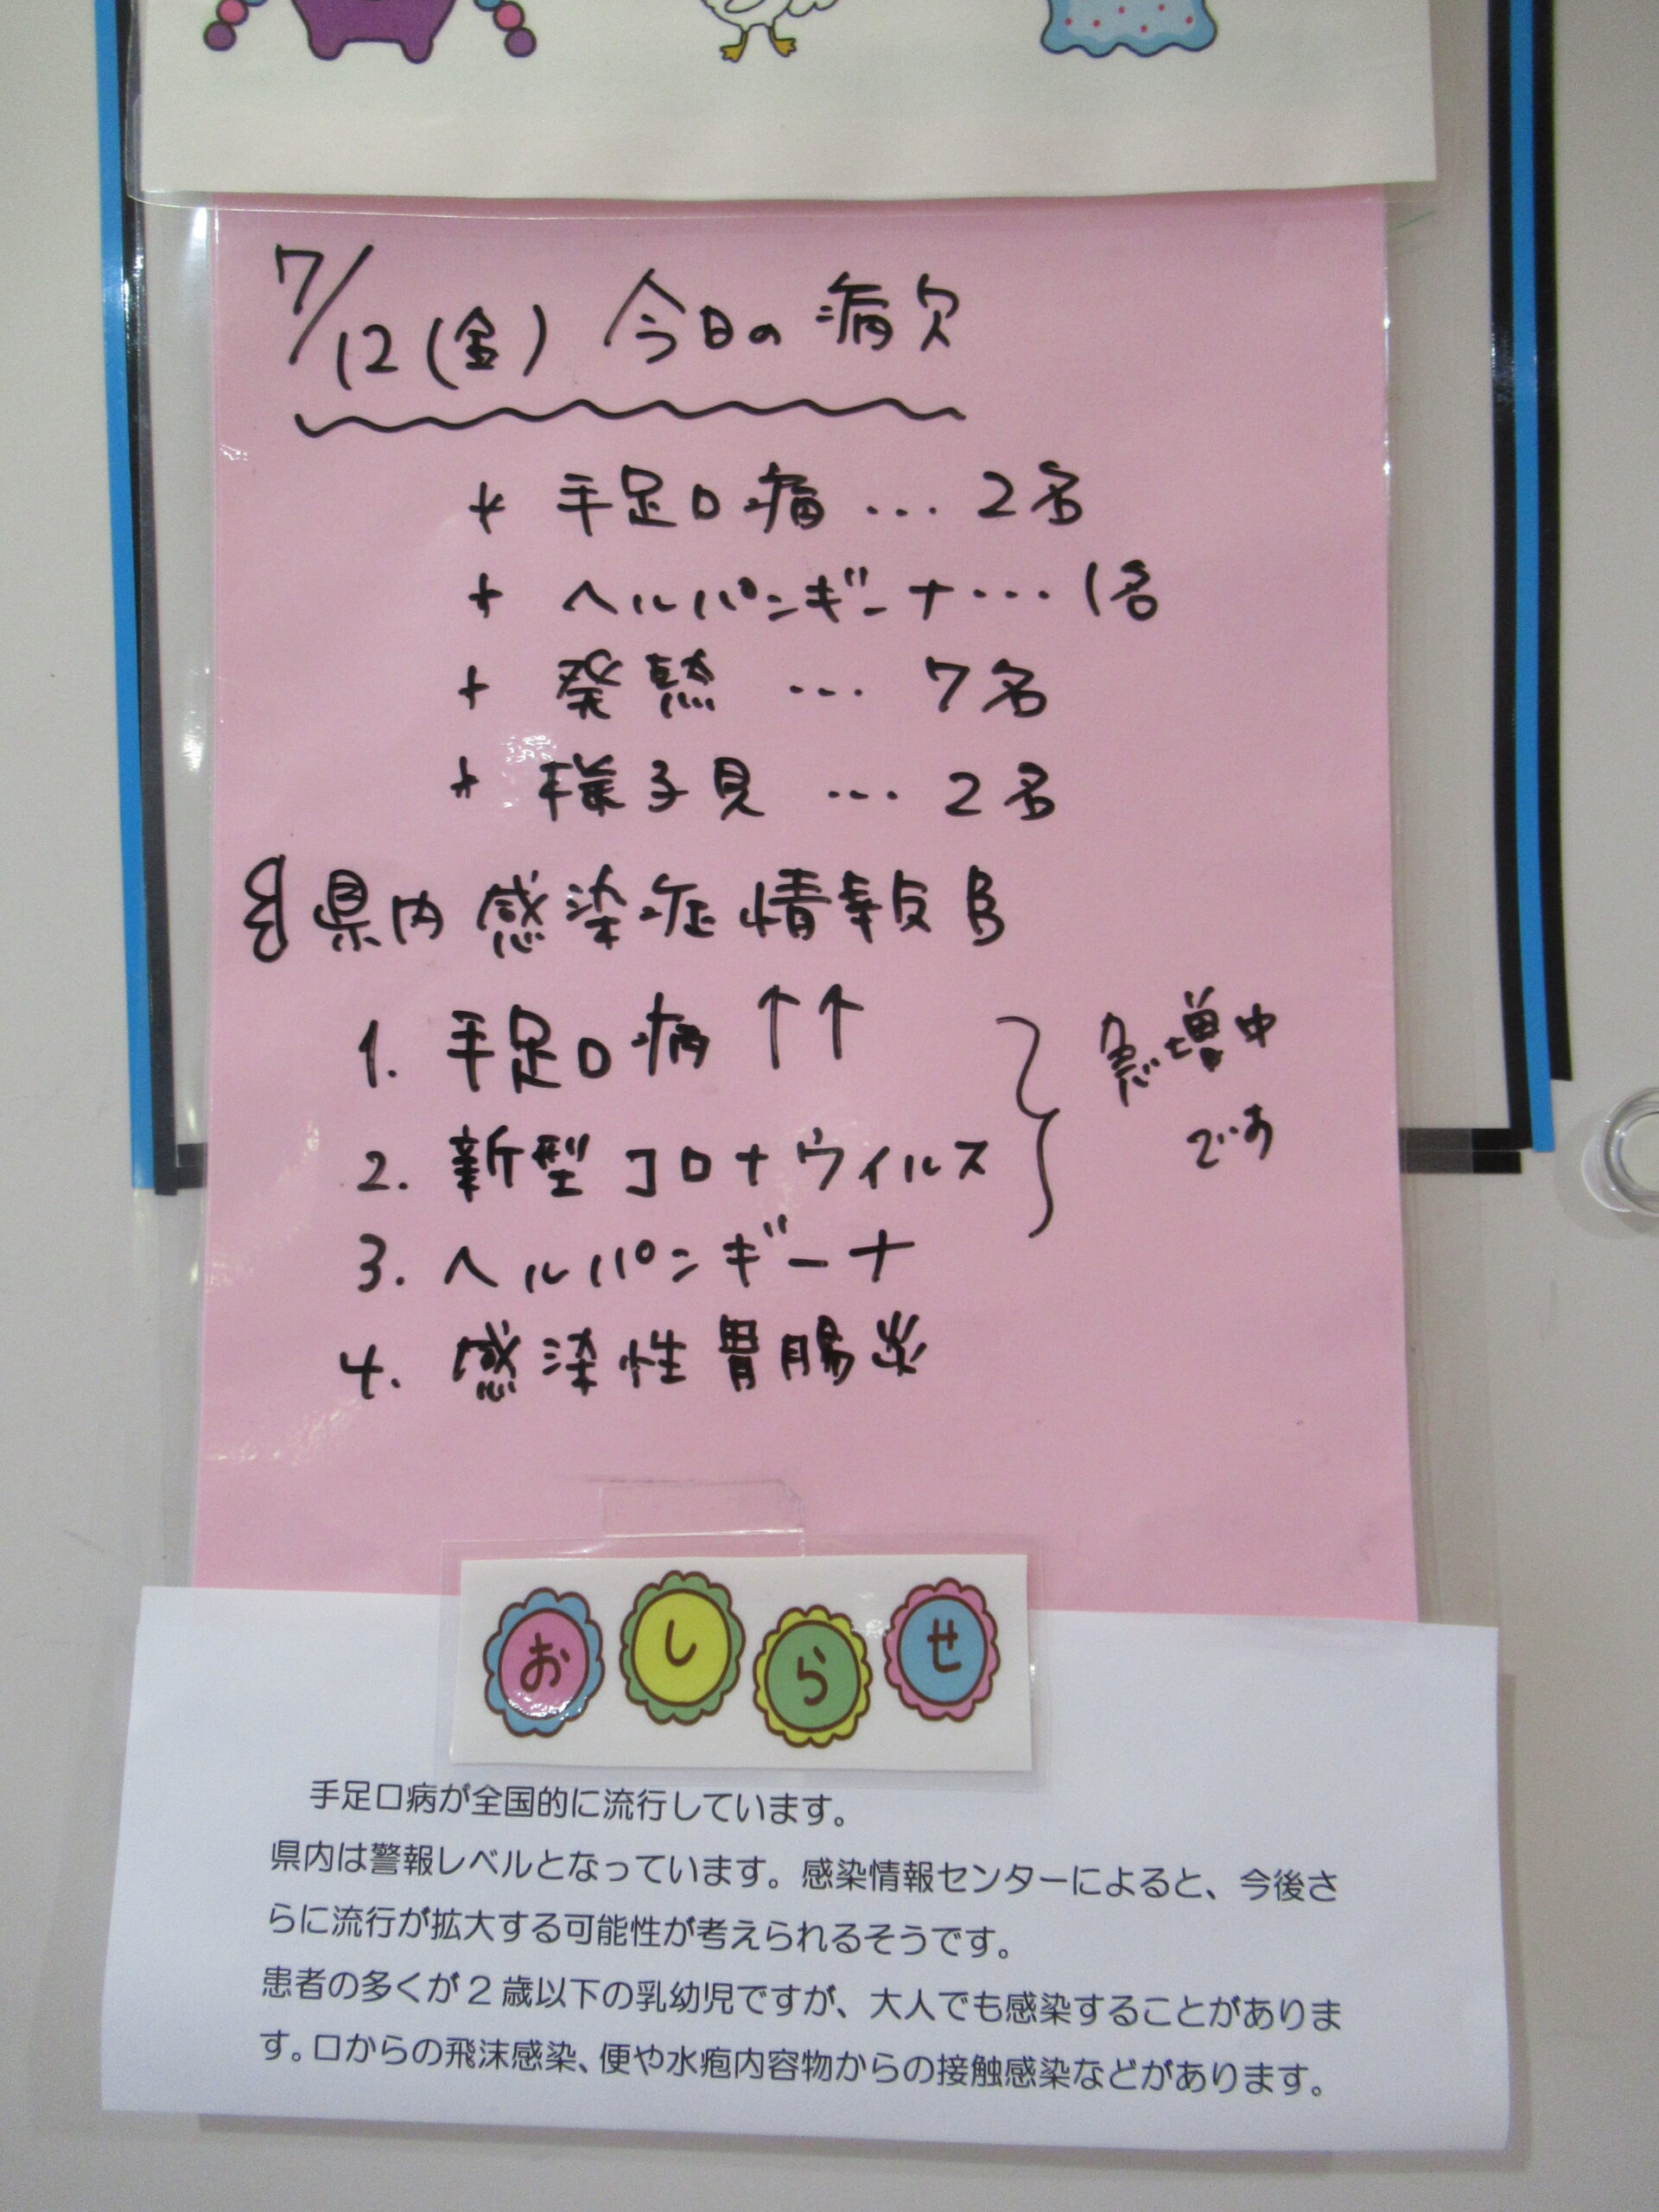 7/12(金) 今日の病欠
* 手足口病…2名
* ヘルパンギーナ…1名
* 発熱…7名
* 様子見…2名
県内感染症情報
1. 手足口病↑↑
2. 新型コロナウィルス
急増中
です
3. ヘルパンギーナ
4. 感染性胃腸炎
おしらせ
手足口病が全国的に流行しています。
県内は警報レベルとなっています。感染情報センターによると、今後さ
らに流行が拡大する可能性が考えられるそうです。
患者の多くが2歳以下の乳幼児ですが、大人でも感染することがありま
す。口からの飛沫感染、便や水疱内容物からの接触感染などがあります。